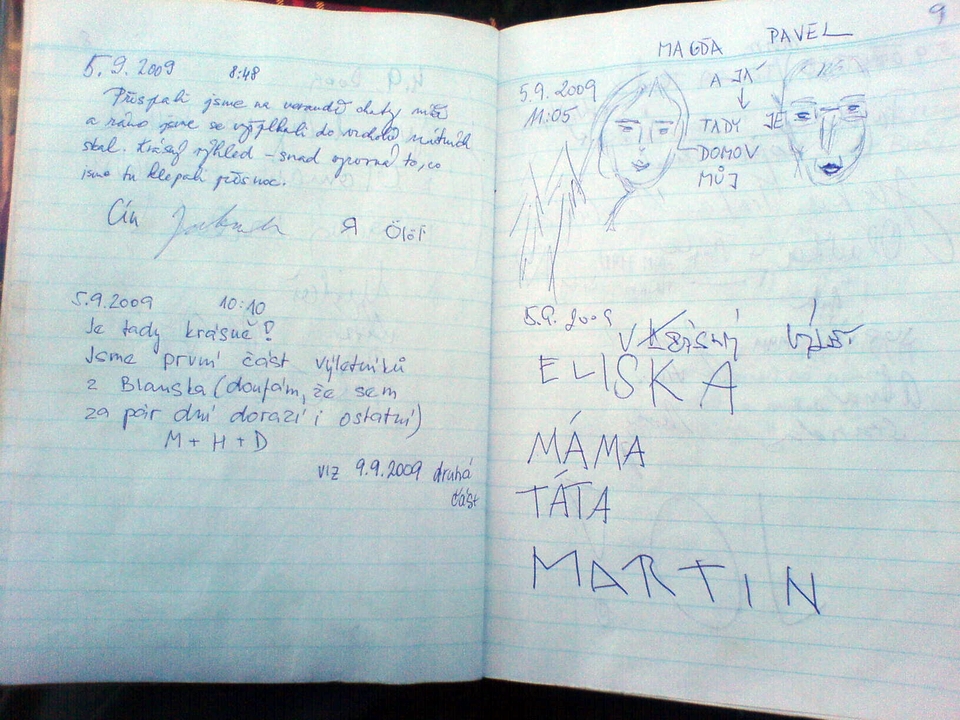 5.9.2009 8:48
Přespali jsme na verandě chaty
a ráno jsme se vyšplhali do
skal. Krásný výhled – snad to, co
jsme tu klepali přes noc.
Já
5.9.2009 10:10
Je tady krásně!
Jsme první část výletníků
z Blanska (doufám, že sem
za pár dní dorazí i ostatní)
M + H + D
viz 9.9.2009 druhá
část
9
MAGDA PAVEL
5.9.2009
11:05
A JÁ
TADY JE
DOMOV
MŮJ
5.9. 2009
V krásný výlet.
ELIŠKA
MÁMA
TÁTA
MARTIN